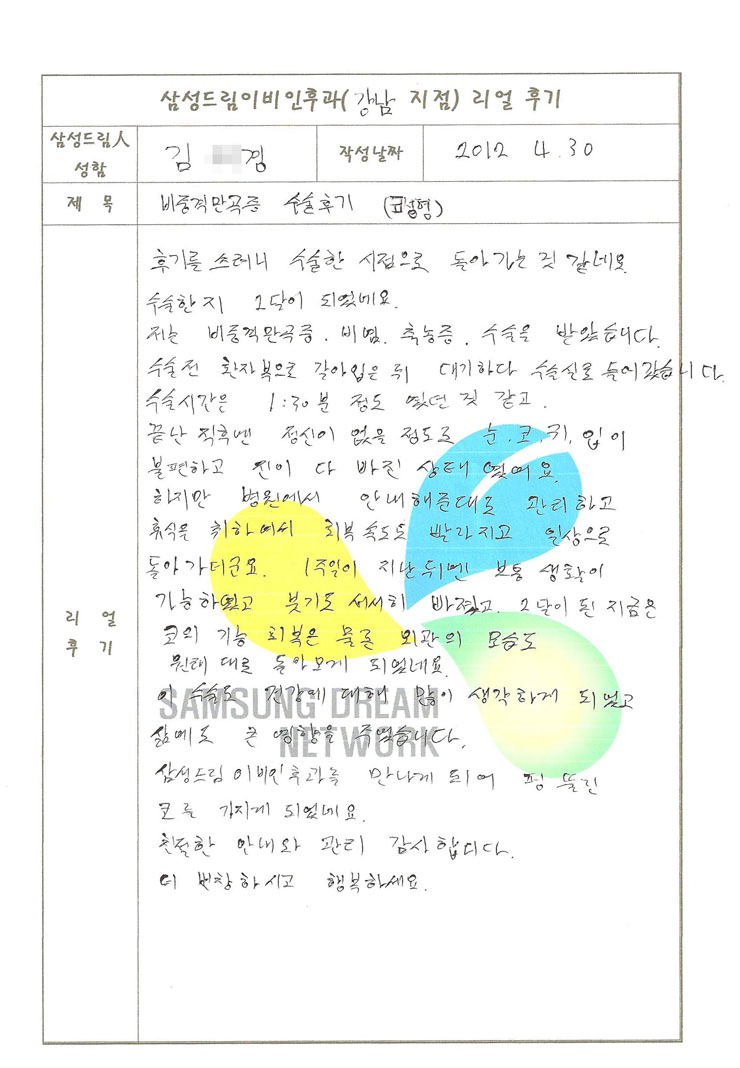 삼성드림이비인후과(강남 지점) 리얼 후기
삼성드림人 성함
김 경
작성날짜
2012 4.30
제 목
비중격만곡증 수술후기 (코성형)
리 얼 후 기
후기를 쓰려니 수술한 시점으로 돌아가는 것 같네요
수술한지 2달이 되었네요.
저는 비중격만곡증. 비염. 축농증. 수술을 받았습니다.
수술전 환자복으로 갈아입은 뒤 대기하다 수술실로 들어갔습니다.
수술시간은 1:30분 정도 였던 것 같고.
끝난 직후엔 정신이 없을 정도로 눈.코.귀.입이
불편하고 진이 다 빠진 상태 였어요.
하지만 병원에서 안내해준대로 관리하고
휴식을 취하면서 회복 속도도 빨라지고 일상으로
돌아가더군요. 1주일이 지난뒤엔 보통 생활이
가능하였고 붓기도 서서히 빠졌고. 2달이 된 지금은
코의 기능 회복은 물론 외관의 모습도
원래 대로 돌아오게 되었네요.
이 수술로 건강에 대해 많이 생각하게 되었고
SAMSUNG DREAM NETWORK
삶에도 큰 영향을 주었습니다.
삼성드림 이비인후과를 만나게 되어 펑 뚫린
코를 가지게 되었네요.
친절한 안내와 관리 감사합니다.
더 번창하시고 행복하세요.